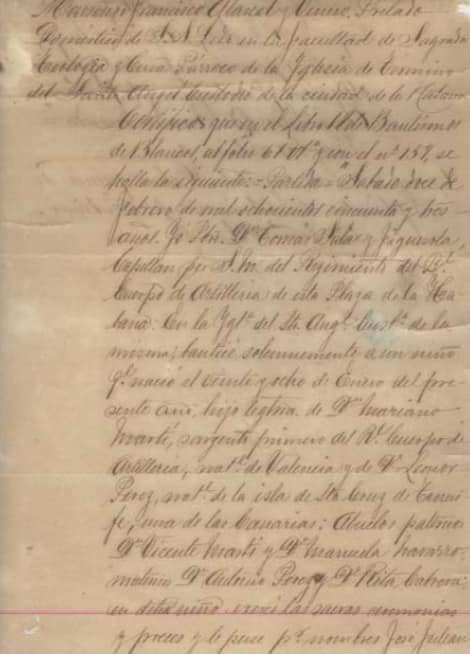 Francisco Clarcet y Tenero, Prelado
Doméstico de S. S. Ldo. en la facultad de Sagrada
Teologia y Cura Párroco de la Yglesia de Termino
del Santo Angel Custodio de la ciudad de la Habana
Certifico: que en el Libro de Bautismos
de Blancos, al folio 61 y con el nº 159, se
halla la siguiente: = Partida = Sabado doce de
febrero de mil ochocientos cincuenta y tres
años. Yo Pbro. Dn. Tomás Sala y Figuerola,
Capellan por S. M. del Regimiento del Rl.
Cuerpo de Artilleria de esta Plaza de la Ha-
bana: en la Yglª del Sto. Angl. Custº de la
misma, bauticé solemnemente a un niño
qe. nació el veinte y ocho de Enero del pre-
sente año, hijo legitmo. de Dn. Mariano
Martí, sargento primero del Rl. Cuerpo de
Artilleria, natl. de Valencia y de Dª. Leonor
Perez, natl. de la isla de Sta. Cruz de Teneri-
fe, una de las Canarias: Abuelos paternos
Dn. Vicente Martí y Dª. Manuela Navarro-
maternos Dn. Antonio Perez y Dª. Rita Cabrera:
en dicho niño ejercí las sacras ceremonias
y preces y le puse pr. nombres José Julian